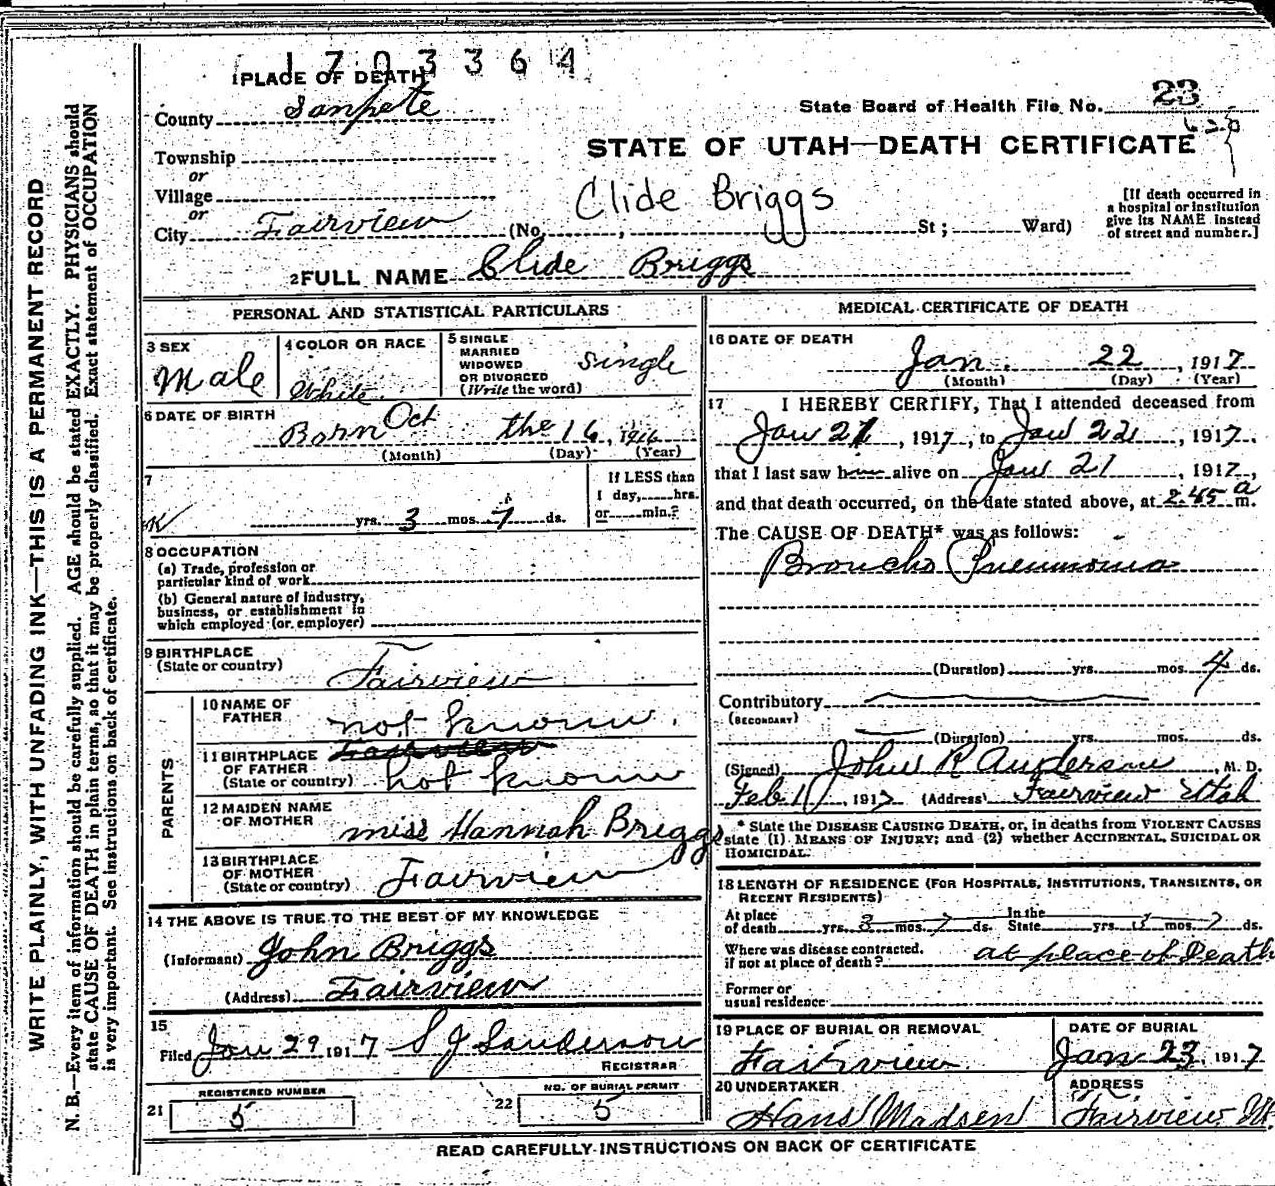 1703364
1 PLACE OF DEATH
County Sanpete
State Board of Health File No. 23
620
Township
STATE OF UTAH—DEATH CERTIFICATE
or
Village
Clide Briggs
[If death occurred in a hospital or institution give its NAME instead of street and number.]
or
City Fairview (No. , St; Ward)
2 FULL NAME Clide Briggs
PERSONAL AND STATISTICAL PARTICULARS
3 SEX Male
4 COLOR OR RACE White
5 SINGLE MARRIED WIDOWED OR DIVORCED (Write the word) single
6 DATE OF BIRTH
Born Oct the 16, 1916
(Month) (Day) (Year)
7
yrs. 3 mos. 7 ds.
If LESS than 1 day, hrs. or min.?
8 OCCUPATION
(a) Trade, profession or
particular kind of work
(b) General nature of industry,
business, or establishment in
which employed (or employer)
9 BIRTHPLACE
(State or country) Fairview
PARENTS
10 NAME OF FATHER not known.
11 BIRTHPLACE OF FATHER (State or country) Fairview not known
12 MAIDEN NAME OF MOTHER miss Hannah Briggs
13 BIRTHPLACE OF MOTHER (State or country) Fairview
14 THE ABOVE IS TRUE TO THE BEST OF MY KNOWLEDGE
(Informant) John Briggs
(Address) Fairview
15
Filed Jan 29 1917 S J Sanderson
REGISTRAR
REGISTERED NUMBER
21 5
NO. OF BURIAL PERMIT
22 5
MEDICAL CERTIFICATE OF DEATH
16 DATE OF DEATH
Jan. 22, 1917
(Month) (Day) (Year)
17 I HEREBY CERTIFY, That I attended deceased from
Jan 21, 1917, to Jan 22, 1917.
that I last saw him alive on Jan 21, 1917,
and that death occurred, on the date stated above, at 2.45 a m.
The CAUSE OF DEATH* was as follows:
Broncho Pneumonia
(Duration) yrs. mos. 4 ds.
Contributory
(SECONDARY)
(Duration) yrs. mos. ds.
(Signed) John R Anderson, M. D.
Feb 1, 1917 (Address) Fairview Utah
* State the DISEASE CAUSING DEATH, or, in deaths from VIOLENT CAUSES
state (1) MEANS OF INJURY; and (2) whether ACCIDENTAL, SUICIDAL OR
HOMICIDAL.
18 LENGTH OF RESIDENCE (FOR HOSPITALS, INSTITUTIONS, TRANSIENTS, OR
RECENT RESIDENTS)
At place of death yrs. 3 mos. 7 ds. In the State yrs. 3 mos. 7 ds.
Where was disease contracted,
if not at place of death? at place of Death
Former or
usual residence
19 PLACE OF BURIAL OR REMOVAL
Fairview
DATE OF BURIAL
Jan 23, 1917
20 UNDERTAKER
Hans Madsen
ADDRESS
Fairview, Ut.
READ CAREFULLY INSTRUCTIONS ON BACK OF CERTIFICATE
WRITE PLAINLY, WITH UNFADING INK—THIS IS A PERMANENT RECORD
N. B.—Every item of information should be carefully supplied. AGE should be stated EXACTLY. PHYSICIANS should
state CAUSE OF DEATH in plain terms, so that it may be properly classified. Exact statement of OCCUPATION
is very important. See instructions on back of certificate.